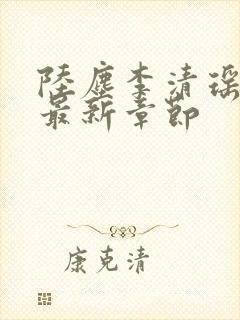 陸塵李清瑤
最新章節
康克清